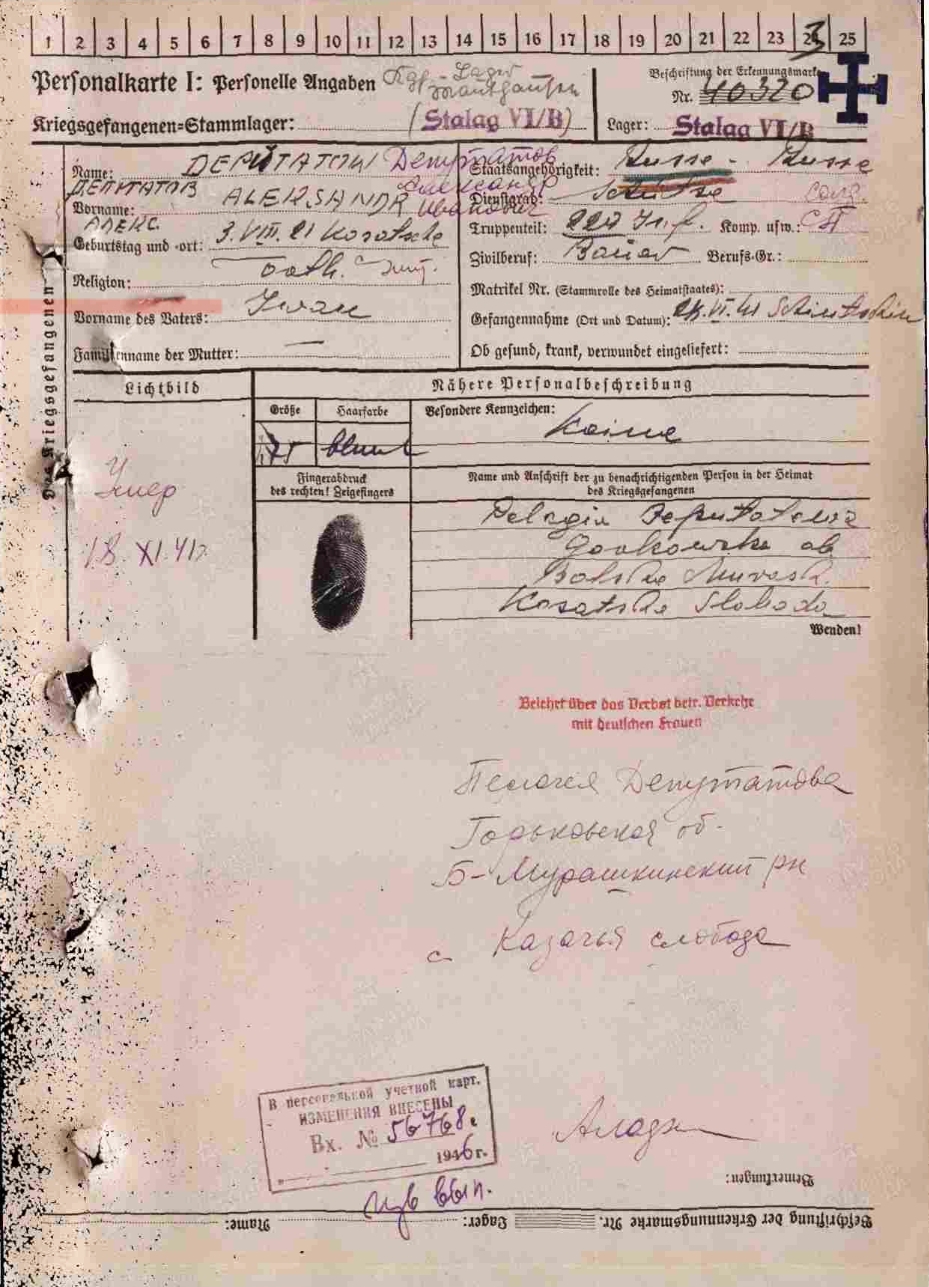 1 2 3 4 5 6 7 8 9 10 11 12 13 14 15 16 17 18 19 20 21 22 23 25
Personalkarte I: Personelle Angaben Kgf.-Lager
Mauthausen
Beschriftung der Erkennungsmarke
Nr. 40320
Kriegsgefangenen=Stammlager: (Stalag VI/B)
Lager: Stalag VI/B
Des Kriegsgefangenen
Name: DEPUTATOW Депутатов
ДЕПУТАТОВ Александр
Vorname: ALEKSANDR Иванович
АЛЕКС.
Geburtstag und =ort: 3.VIII.21 Kosatske
Religion: orth.
Vorname des Vaters: Iwan
Familienname der Mutter: —
Staatsangehörigkeit: Russe - Russe
Dienstgrad: Schütze солд.
Truppenteil: Inf. Komp. usw.: СП
Zivilberuf: Bauer Berufs-Gr.:
Matrikel Nr. (Stammrolle des Heimatstaates):
Gefangennahme (Ort und Datum): VI.41
Ob gesund, krank, verwundet eingeliefert:
Lichtbild
Nähere Personalbeschreibung
Größe Haarfarbe
Besondere Kennzeichen:
175 blond
Keine
Fingerabdruck
des rechten! Zeigefingers
Name und Anschrift der zu benachrichtigenden Person in der Heimat
des Kriegsgefangenen
Pelagia Deputatowa
Gorkowska ob
Bolsche Murasch.
Kosatske Sloboda
Умер
18.XI.41г
Wenden!
Belehrt über das Verbot betr. Verkehr
mit deutschen Frauen
Пелагея Депутатова
Горьковской об.
Б-Мурашкинский рн
с Казачья слобода
В персональной учетной карт.
ИЗМЕНЕНИЯ ВНЕСЕНЫ
Вх. № 56768с
1946г.
Bemerkungen:
Beschriftung der Erkennungsmarke Nr. Lager: Name: